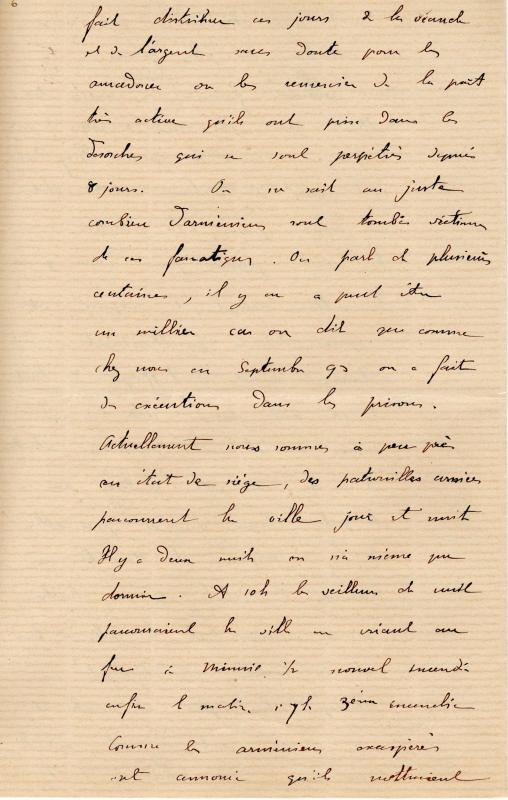 fait distribuer ces jours à les viande
et de l'argent sans doute pour les
amadouer ou les remercier de la part
très active qu'ils ont prise dans les
désordres qui se sont perpétrés depuis
8 jours. On ne sait au juste
combien d'arméniens sont tombés victimes
de ces fanatiques. On parle de plusieurs
centaines, il y en a peut être
un millier car on dit que comme
chez nous en Septembre 93 on a fait
des exécutions dans les prisons.
Actuellement nous sommes à peu près
en état de siège, des patrouilles armées
parcourent la ville jour et nuit
Il y a deux nuits on n'a même pu
dormir. A 10h les veilleurs de nuit
parcouraient la ville en criant au
feu à minuit 1/2 nouvel incendie
enfin le matin à 7h 3ème incendie
Comme les arméniens exaspérés
ont annoncé qu'ils mettraient